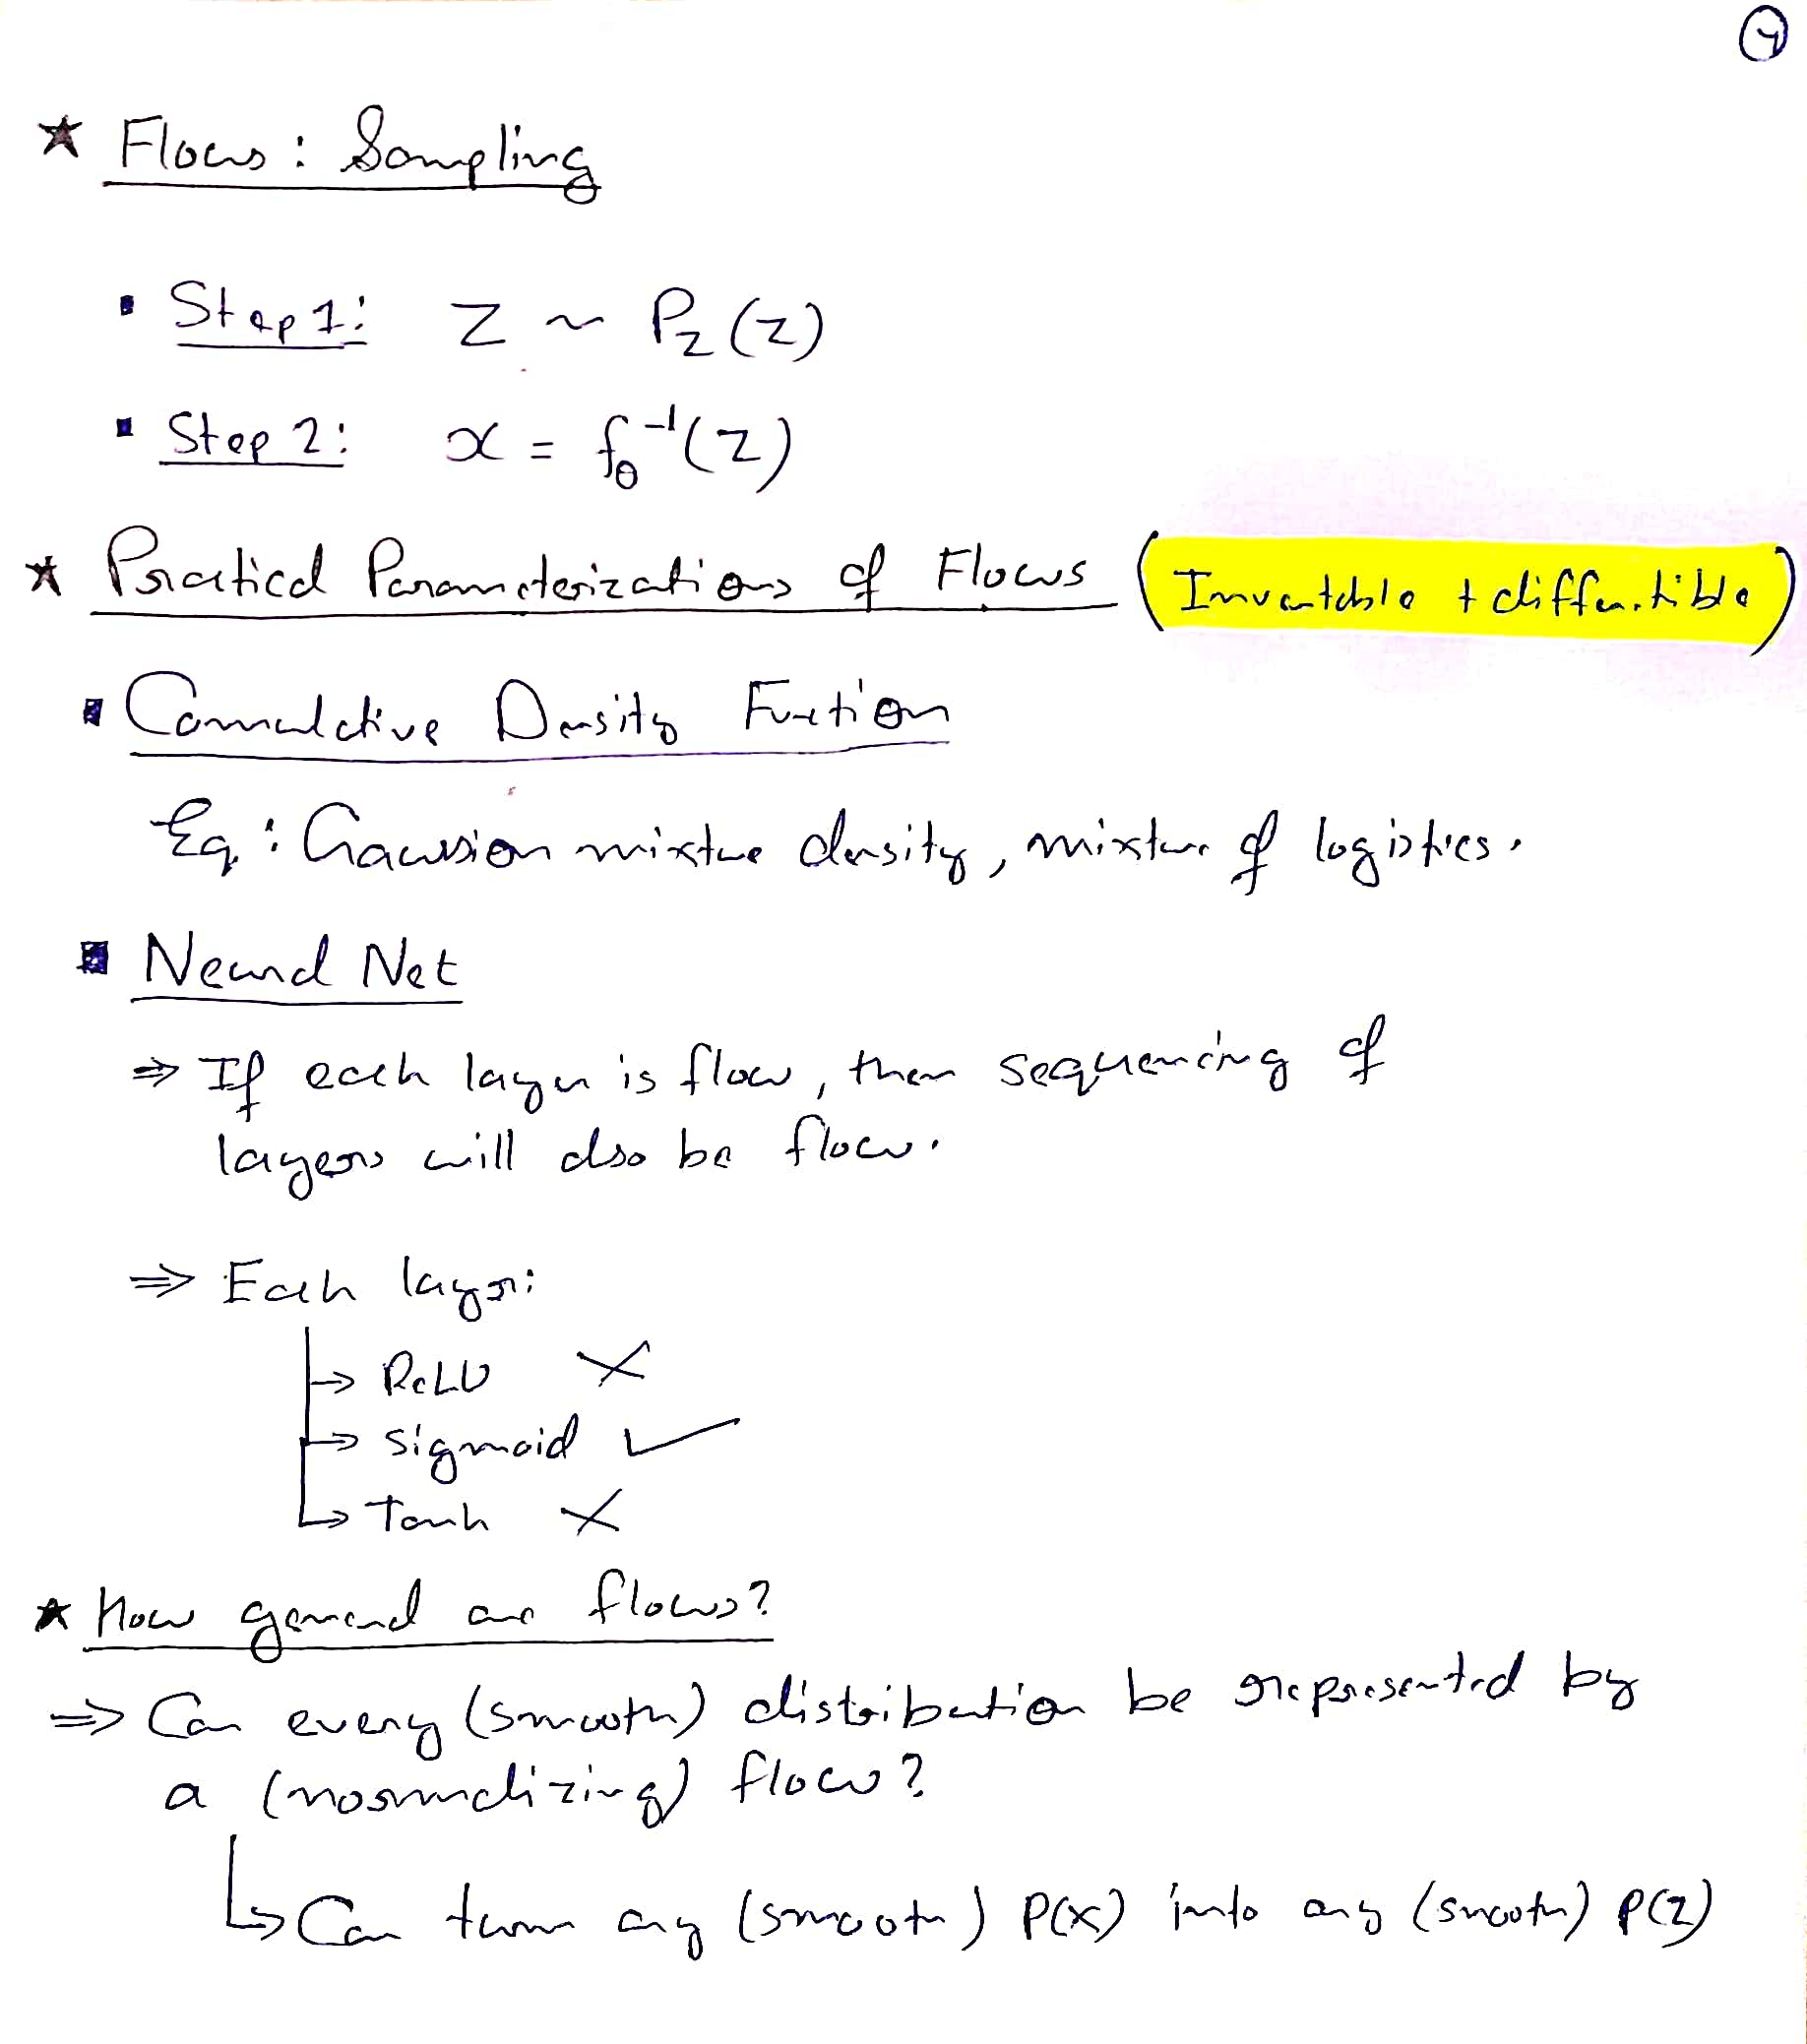 ④
★ Flows : Sampling
▪ Step 1: z ~ P_Z (z)
▪ Step 2: x = f_θ^{-1}(z)
★ Practical Parameterizations of Flows (Invertable + differtible)
▪ Commulative Density Fuction
Eg : Gaussian mixture density, mixture of logistics.
▪ Neural Net
⇒ If each layer is flow, then sequencing of
layers will also be flow.
⇒ Each layer:
→ ReLU ✗
→ sigmoid ✓
↳ Tanh ✗
★ How general are flows?
⇒ Can every (smooth) distribution be represented by
a (normalizing) flow?
↳ Can turn any (smooth) P(x) into any (smooth) P(z)